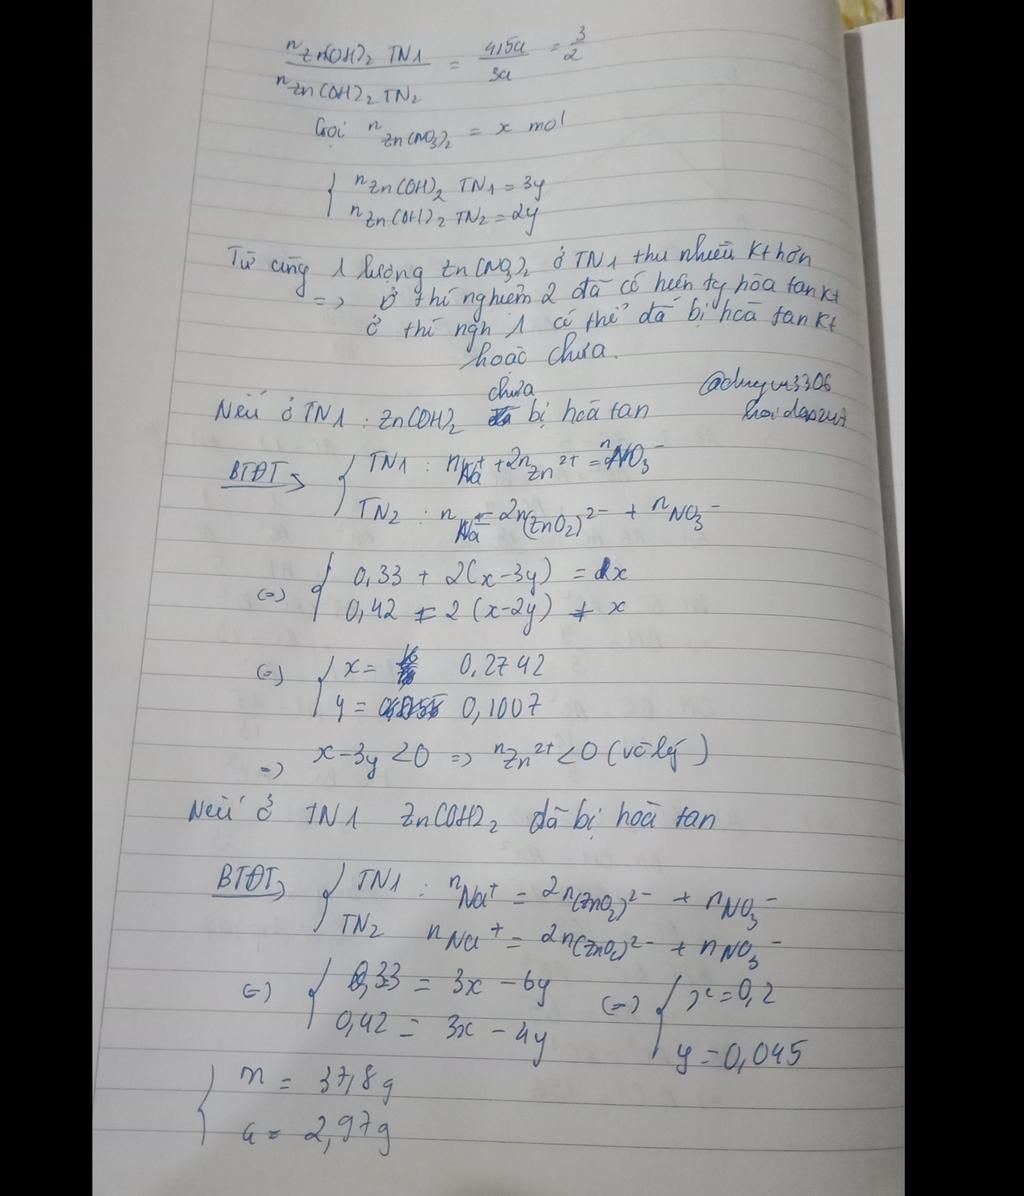 nZn(OH)2 TN1 / nZn(OH)2 TN2 = 4,5a / 3a = 3/2
Gọi nZn(NO3)2 = x mol
{ nZn(OH)2 TN1 = 3y
nZn(OH)2 TN2 = 2y
Từ cùng 1 lượng Zn(NO3)2 ở TN1 thu nhiều kt hơn
=> ở thí nghiệm 2 đã có hiện tg hòa tan kt
ở thí ngh 1 có thể đã bị hoà tan kt
hoặc chưa.
Nếu ở TN1 : Zn(OH)2 chưa bị hoà tan
@duyu3306
hoidap247
BTĐT> { TN1 : nNa+ + 2nZn2+ = nNO3-
TN2 : nNa+ = 2n(ZnO2)2- + nNO3-
(=) { 0,33 + 2(x-3y) = 2x
0,42 = 2(x-2y) + x
(=) { x = 0,2742
y = 0,1007
=> x-3y <0 => nZn2+ <0 (vô lý)
Nếu ở TN1 Zn(OH)2 đã bị hoà tan
BTĐT> { TN1 : nNa+ = 2n(ZnO2)2- + nNO3-
TN2 nNa+ = 2n(ZnO2)2- + nNO3-
(=) { 0,33 = 3x - 6y (=) { x = 0,2
0,42 = 3x - 4y y = 0,045
{ m = 37,8g
a = 2,97g